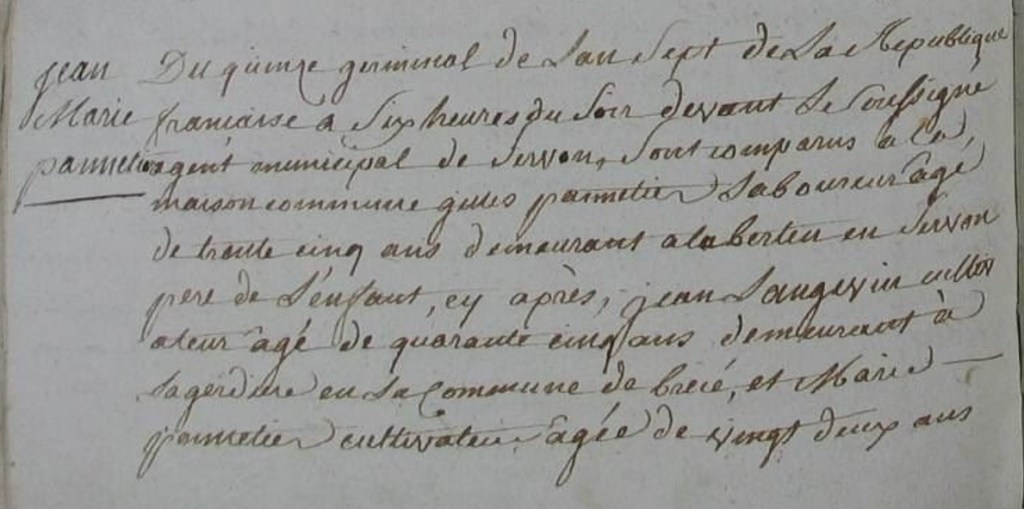 jean
Marie
pannetier
Du quinze germinal de Lan Sept de La Republique
francaise a Six heures du Soir devant Le Soussigné
agent municipal de Servon, Sont comparus a la
maison commune gilles pannetier Laboureur âgé
de trente cinq ans demeurant a laberteu en Servon
pere de L'enfant, cy après, jean Langevin cultiv
ateur âgé de quarante cinq ans demeurant à
la en La Commune de brecé, et Marie
pannetier cultivateur âgée de vingt deux ans